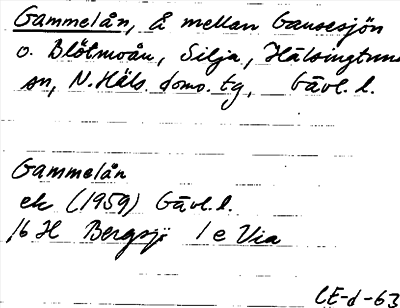 Gammelån, å mellan Gausesjön
o. Blötmoån, Silja, Hälsingtuna
sn, N. Häls. doms. tg, Gävl. l.
Gammelån
ek (1959) Gävl. l.
16 H Bergsjö 1 e Via
CE-d-63